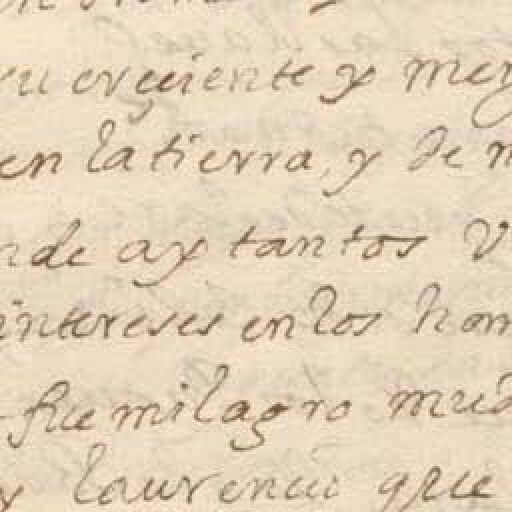 creçiente y mer
en la tierra, y de m
nde ay tantos V
intereses en los hom
fue milagro mud
y laurencio que